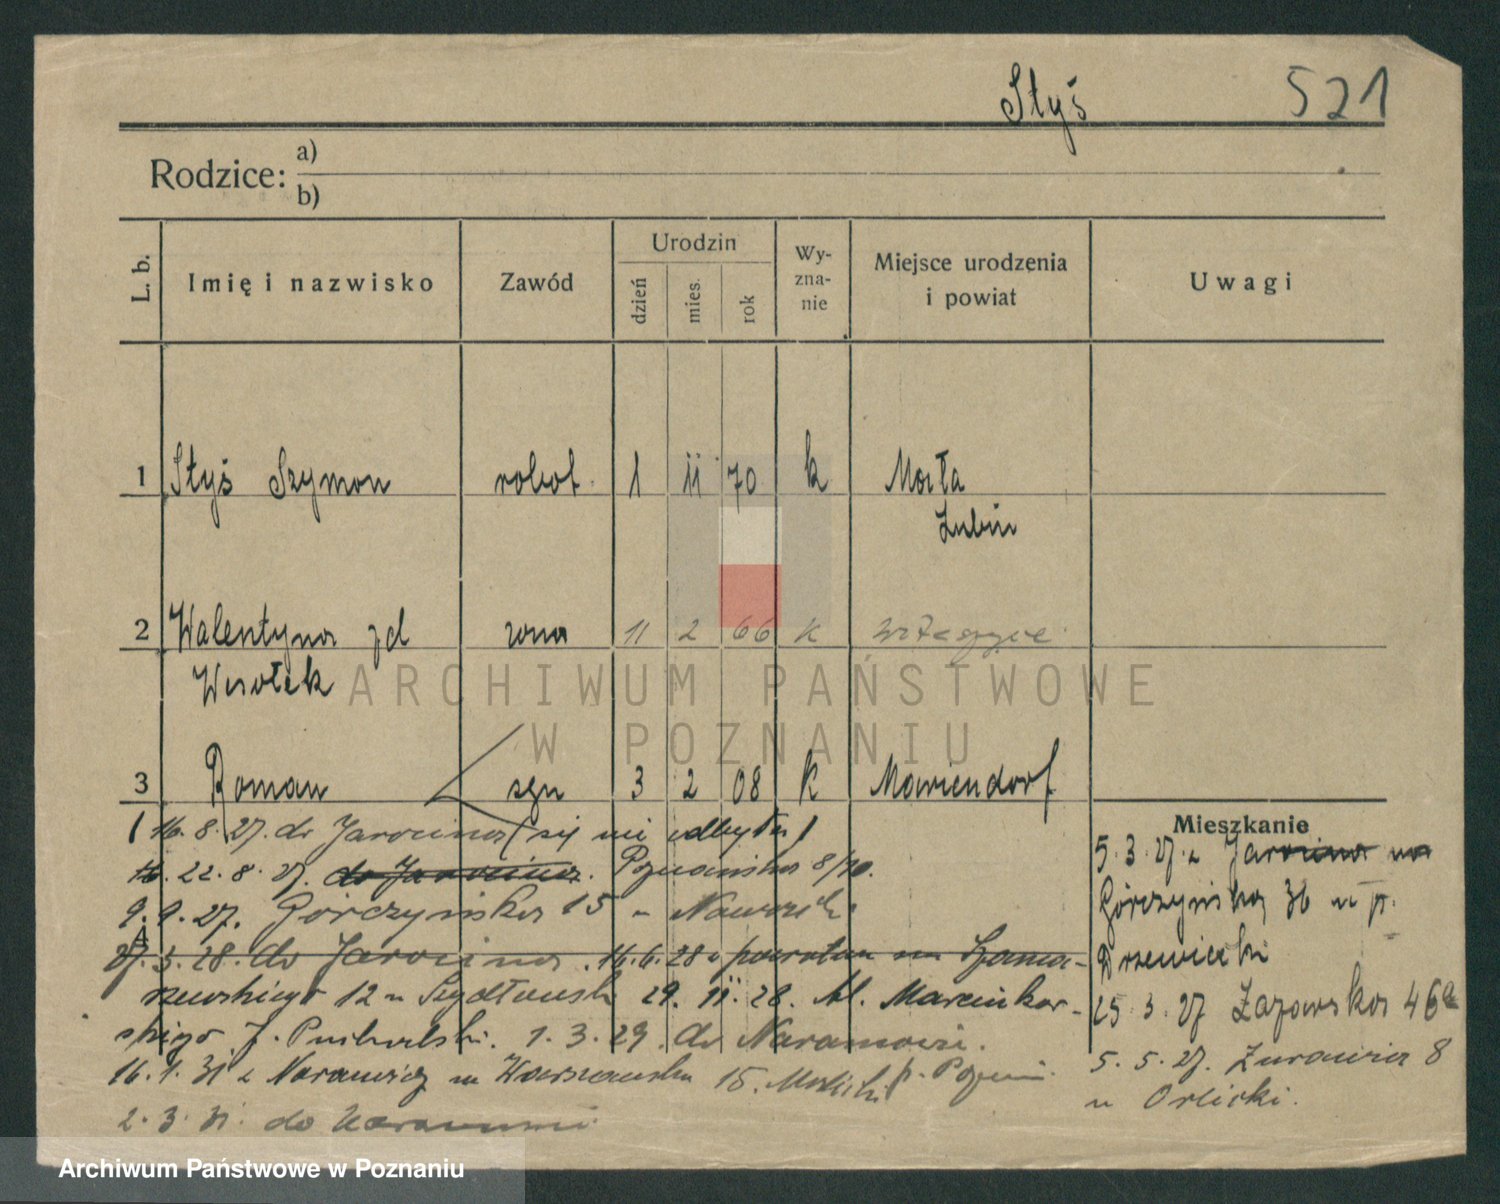 Styś 521
Rodzice: a)
b)
L. b. Imię i nazwisko Zawód Urodzin dzień mies. rok Wy-zna-nie Miejsce urodzenia i powiat Uwagi
1 Styś Szymon robot. 1 11 70 k Morta
Lubin
2 Walentyna zd żona 11 2 66 k
Wesołek
3 Roman syn 3 2 08 k Mariendorf
16.8.27. do Jarocina (się nie odbyta)
22.8.27. do Jarocina. Poznańska 8/10.
9.9.27. Górczyńska 15 u
4
27.5.28. do Jarocina. 16.6.28 z powrotem na Szama-
rzewskiego 12 u 29. 11. 28. Al. Marcinkow-
skiego 7. 1.3.29. do Naramowic.
16.1.31 z Naramowic Warszawska 15.
2.3.31. do Naramowic
Mieszkanie
5.3.27. z Jarocina na
Górczyńską 36 u p.
Drzewiecki
25.3.27 Łazarska 46a
5.5.27. Żurawia 8
u Orlicki.
ARCHIWUM PAŃSTWOWE
W POZNANIU
Archiwum Państwowe w Poznaniu